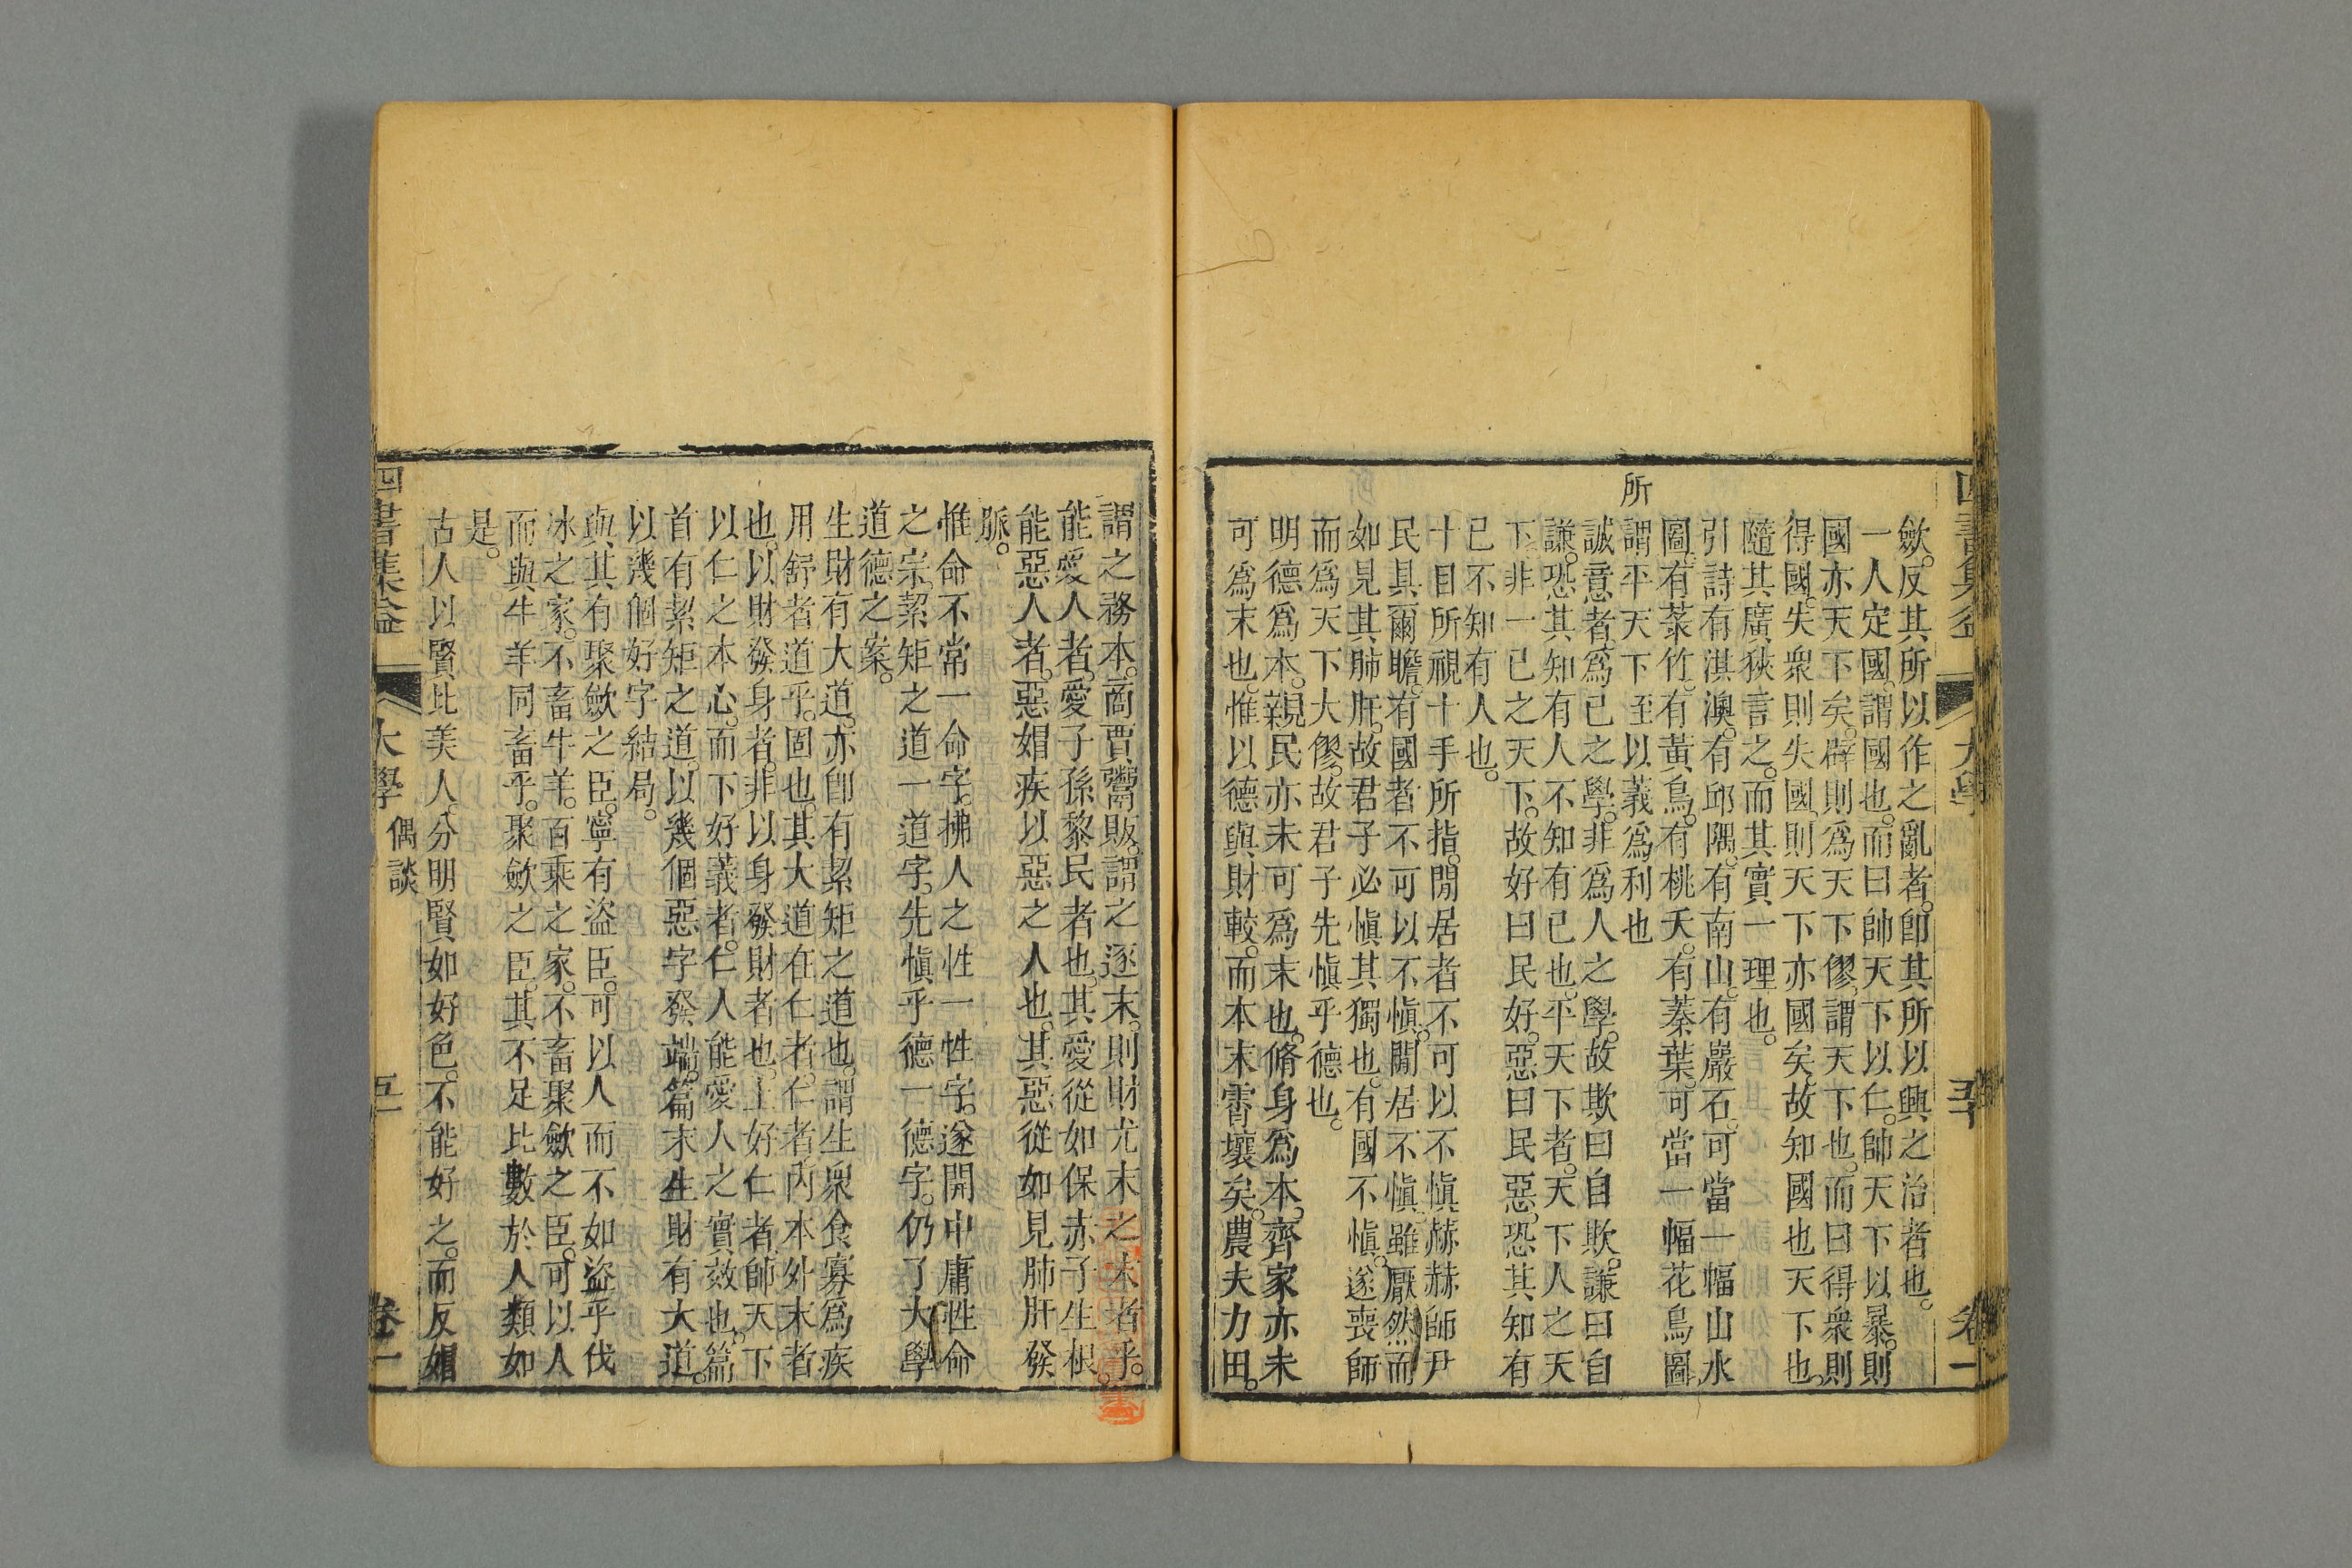 四書集益 大學 五十 卷一
歛。反其所以作之亂者。卽其所以興之治者也。
一人定國。謂國也。而曰帥天下以仁。帥天下以暴。則
國亦天下矣。辟則爲天下僇。謂天下也。而曰得衆則
得國。失衆則失國。則天下亦國矣。故知國也天下也。
隨其廣狹言之。而其實一理也。
引詩有淇澳。有邱隅。有南山。有巖石。可當一幅山水
圖。有菉竹。有黃鳥。有桃夭。有蓁葉。可當一幅花鳥圖。
所謂平天下至以義爲利也
誠意者。爲已之學。非爲人之學。故欺曰自欺。謙曰自
謙。恐其知有人不知有已也。平天下者。天下人之天
下。非一已之天下。故好曰民好。惡曰民惡。恐其知有
已不知有人也。
十目所視十手所指。閒居者不可以不愼赫赫師尹
民具爾瞻。有國者不可以不愼。閒居不愼。雖厭然而
如見其肺肝。故君子必愼其獨也。有國不愼。遂喪師
而爲天下大僇。故君子先愼乎德也。
明德爲本。親民亦未可爲末也。脩身爲本。齊家亦未
可爲末也。惟以德與財較。而本末霄壤矣。農夫力田。
謂之務本。商賈鬻販。謂之逐末。則財尤末之末者乎。
能愛人者。愛子孫黎民者也。其愛從如保赤子生根。
能惡人者。惡媢疾以惡之人也。其惡從如見肺肝發
脈。
惟命不常一命字。拂人之性一性字。遂開中庸性命
之宗。絜矩之道一道字。先愼乎德一德字。仍了大學
道德之案。
生財有大道。亦卽有絜矩之道也。謂生衆食寡爲疾
用舒者道乎。固也。其大道在仁者。仁者內本外末者
也。以財發身者。非以身發財者也。上好仁者。帥天下
以仁之本心。而下好義者。仁人能愛人之實效也。篇
首有絜矩之道。以幾個惡字發端。篇末生財有大道。
以幾個好字結局。
與其有聚歛之臣。寧有盜臣。可以人而不如盜乎伐
冰之家。不畜牛羊。百乘之家。不畜聚歛之臣。可以人
而與牛羊同畜乎。聚歛之臣。其不足比數於人類如
是。
古人以賢比美人。分明賢如好色。不能好之。而反娼
四書集益 大學 偶談 五一 卷一